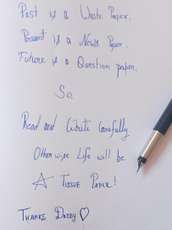 Past is a Waste Paper.
Present is a News Paper.
Future is a Question paper.
So
Read and Write Carefully
Otherwise Life will be
A Tissue Paper!
Thanks Daddy ♡